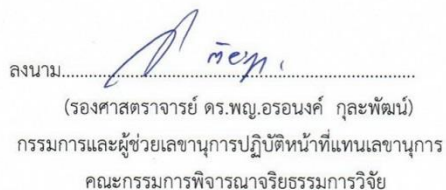 ลงนาม
(รองศาสตราจารย์ ดร.พญ.อรอนงค์ กุละพัฒน์)
กรรมการและผู้ช่วยเลขานุการปฏิบัติหน้าที่แทนเลขานุการ
คณะกรรมการพิจารณาจริยธรรมการวิจัย